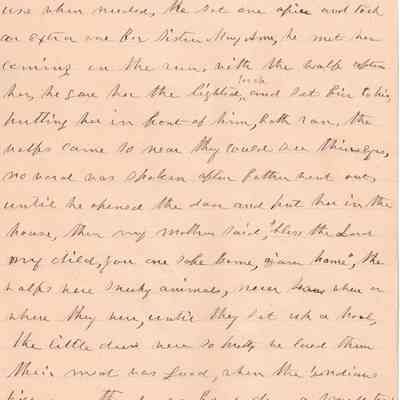 use when needed, He set one afire and took
an extra one for sister Mary Ann, he met her
coming on the run, with the wolfs after
her, he gave her the lighted torch, and set fire to his,
putting her in front of him, both ran, the
wolfs came so near they could see their eyes,
no word was spoken after father went out,
until he opened the door and put her in the
house, then my mother said, "bless the Lord
my child, you are safe home, safe home", the
wolfs were sneaky animals, never knew when or
where they were, until they set up a howl,
The little deer were so pretty we loved them
their meat was good, when the indians